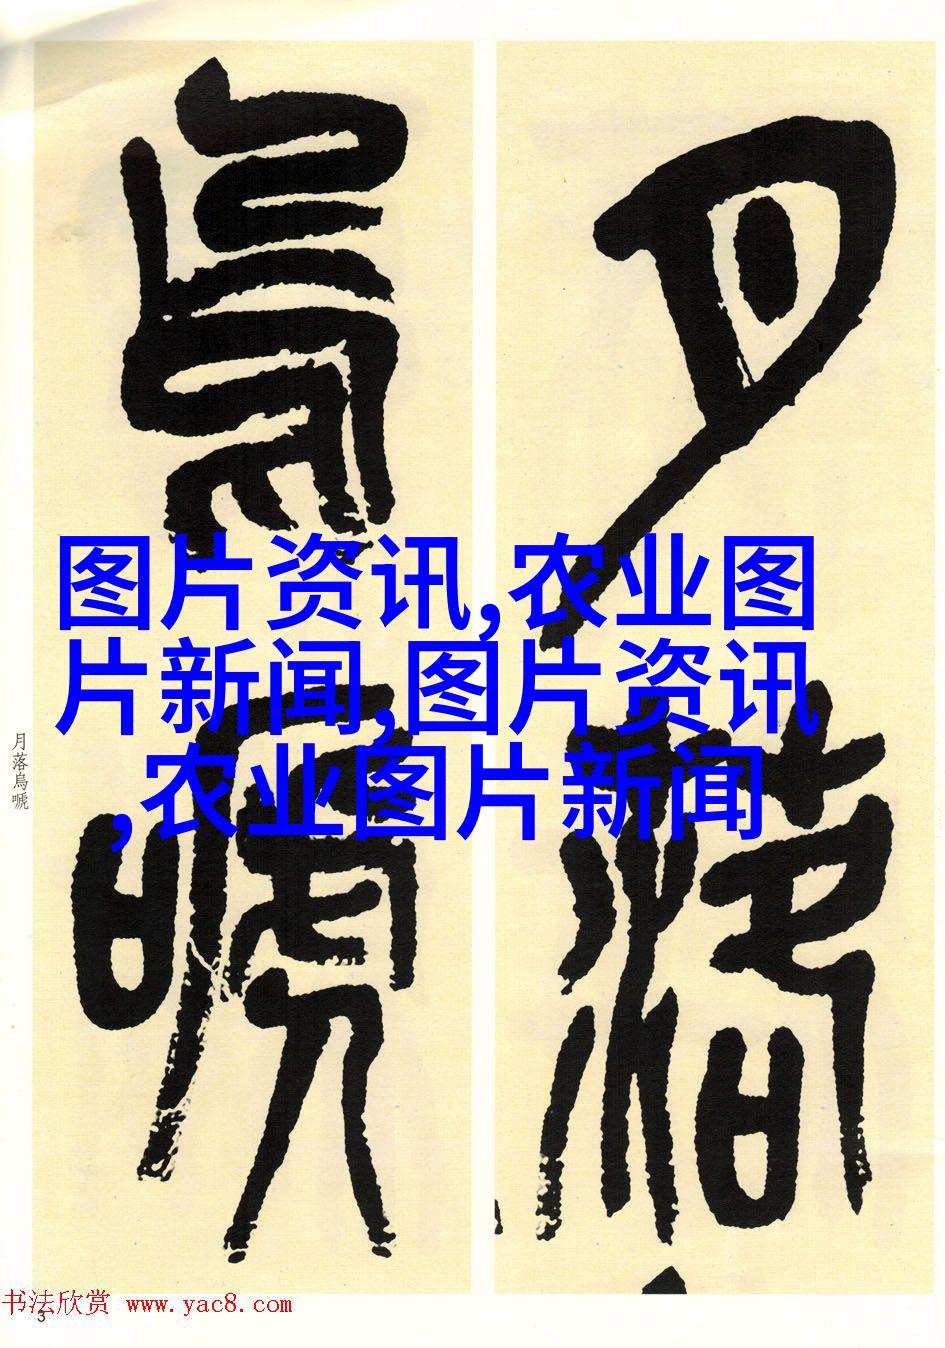 月落
烏嗁
图片资讯,农业图
片新闻,图片资讯
,农业图片新闻
月落烏嗁
书法欣赏 www.yac8.com
3